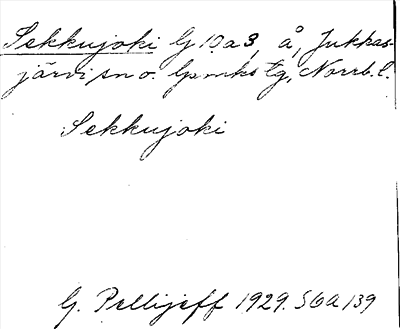 Sekkujoki G 10 a 3, å, Jukkas-
järvi sn o. lpmks tg, Norrb. l.
Sekkujoki
G. Pellijeff 1929. S6a 139